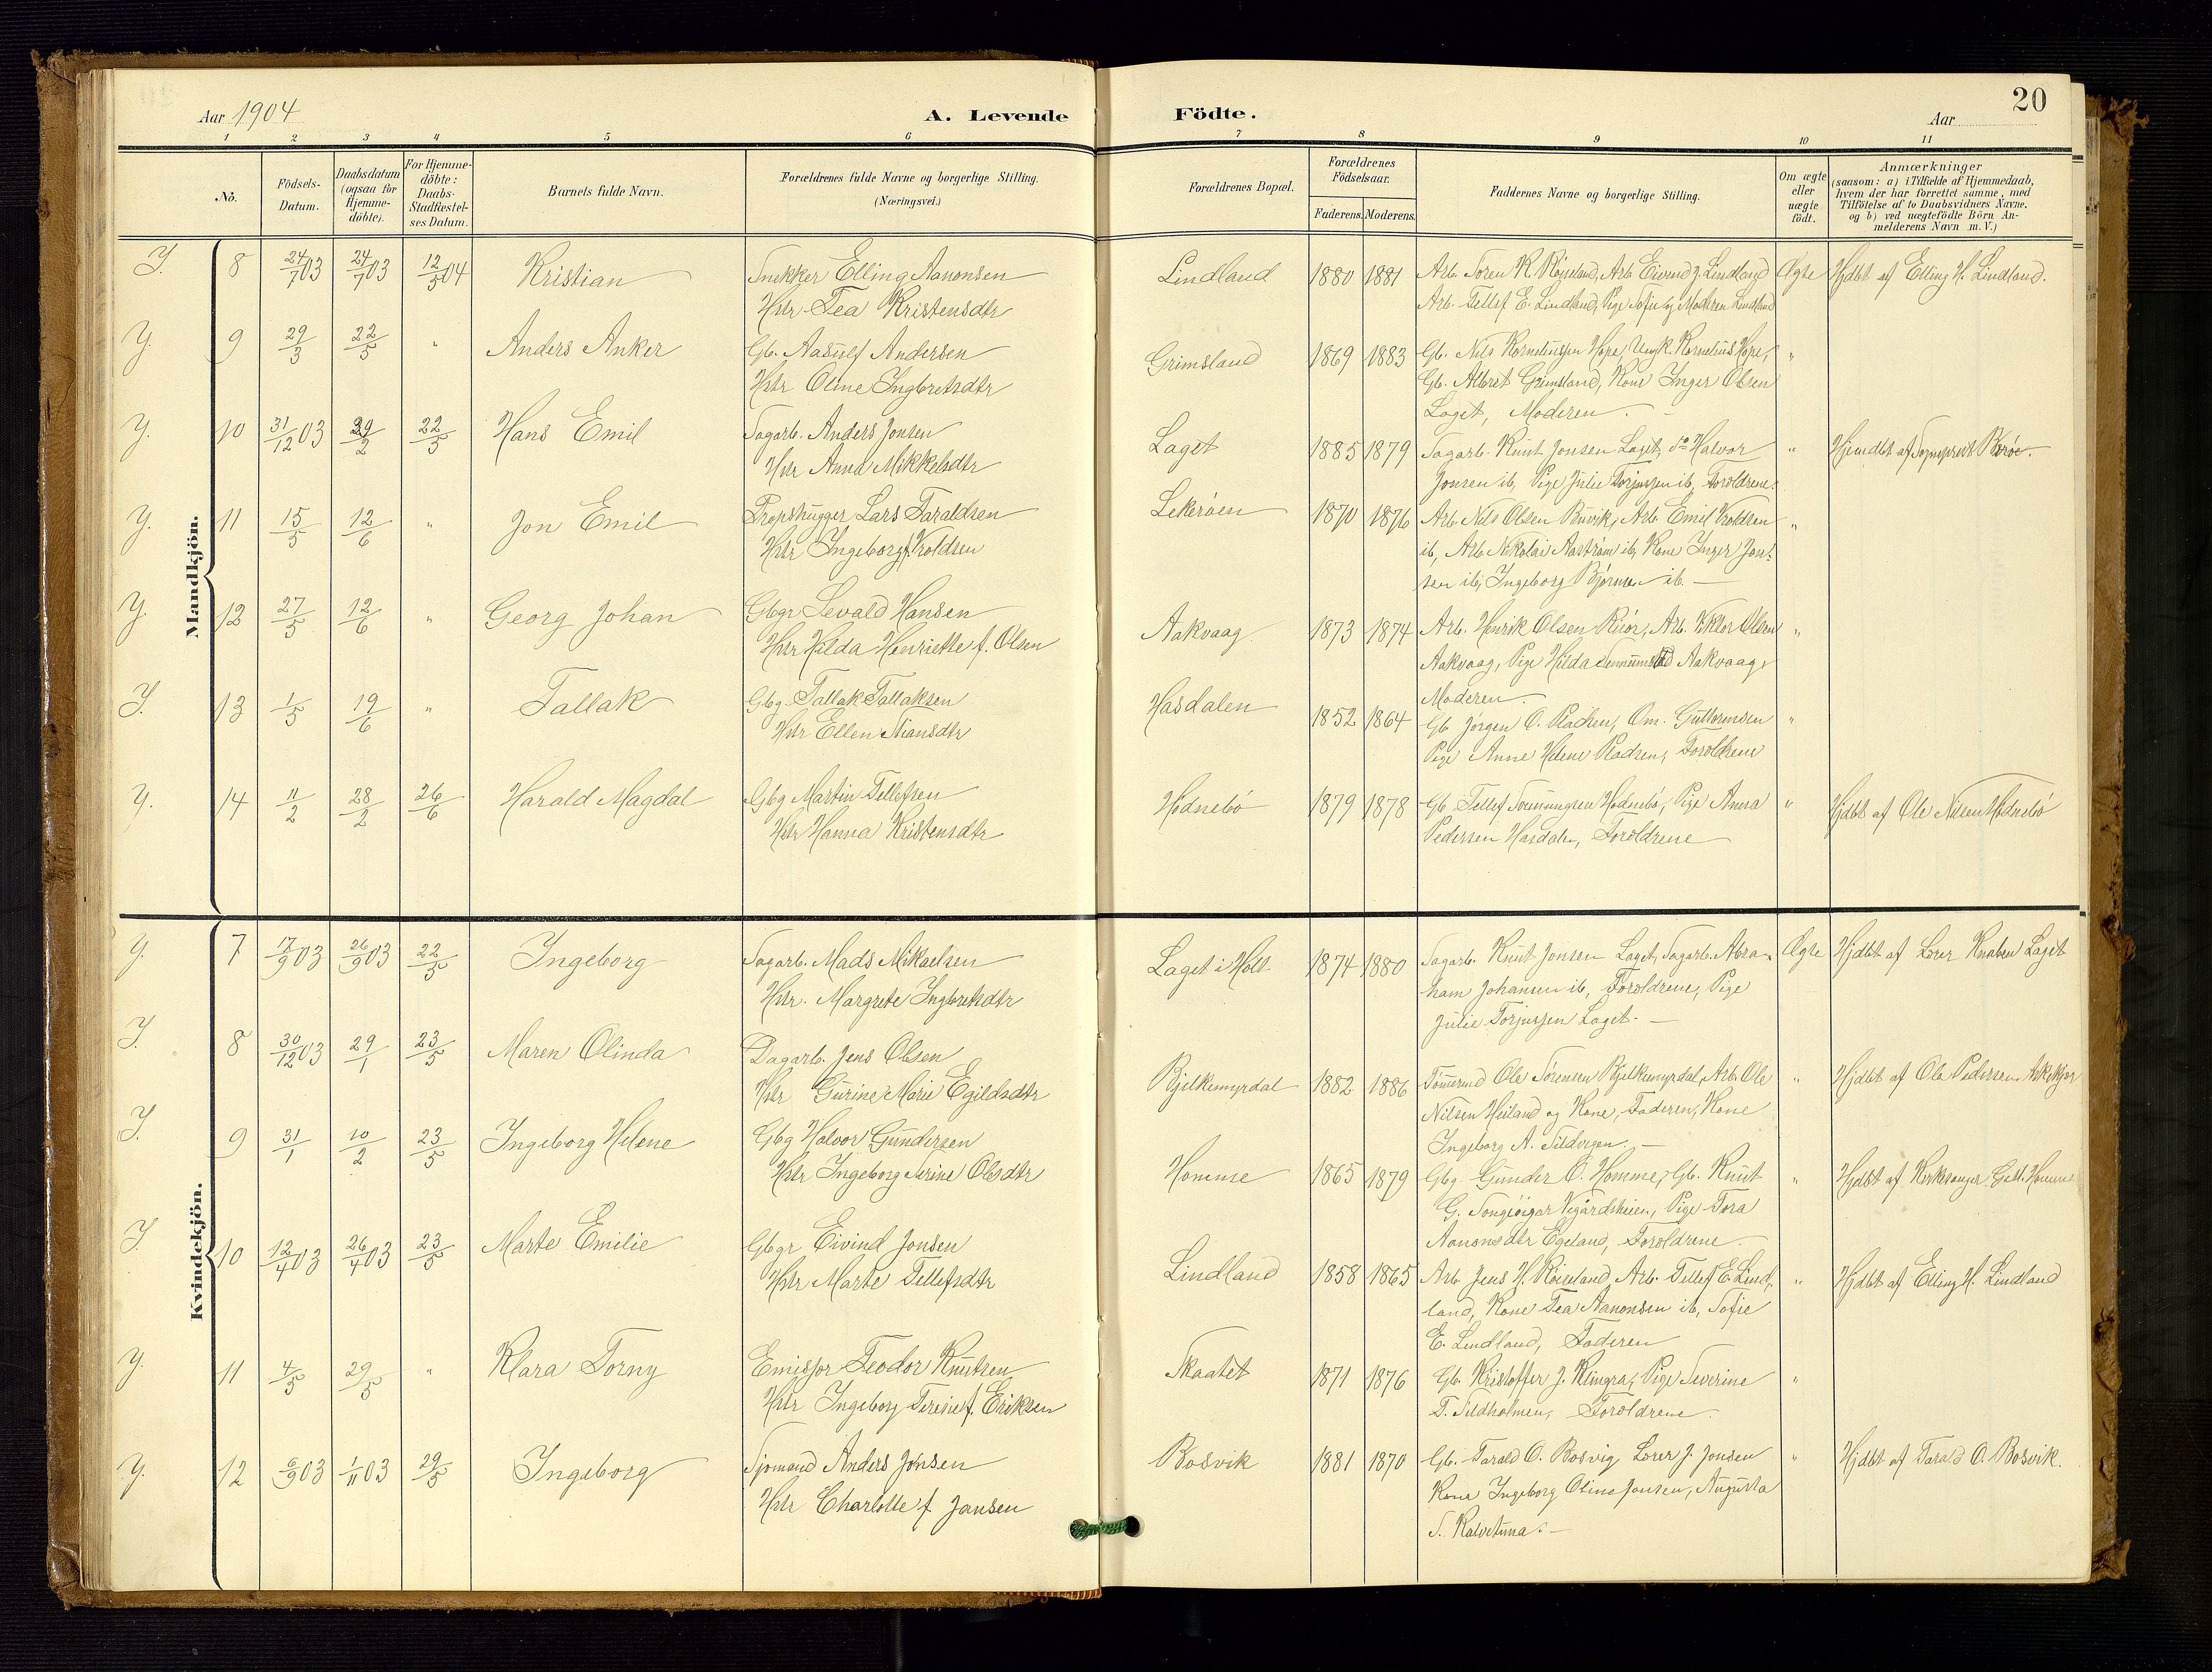 20
Aar 1904
A. Levende Födte.
Aar
1 2 3 4 5 6 7 8 9 10 11
No.
Födsels-Datum.
Daabsdatum (ogsaa for Hjemme-döbte).
For Hjemme-döbte: Daabs-Stadfæstel-ses Datum.
Barnets fulde Navn.
Forældrenes fulde Navne og borgerlige Stilling. (Næringsvei.)
Forældrenes Bopæl.
Forældrenes Födselsaar.
Faderens. Moderens.
Faddernes Navne og borgerlige Stilling.
Om ægte eller uægte födt.
Anmærkninger
(saasom: a) i Tilfælde af Hjemmedaab,
hvem der har forrettet samme, med
Tilföielse af to Daabsvidners Navne,
og b) ved uægtefödte Börn An-
melderens Navn m. V.)
Mandkjön.
Y. 8 24/7 03 24/7 03 12/5 04 Kristian Snekker Elling Aanonsen Lindland 1880 1881 Arb. Søren K. Røiseland, Arb. Eivind J. Lindland Ægte Hjdbt af Elling H. Lindland.
Hstr Tea Kristensdtr Arb. Tellef E. Lindland, Pige Sofie og Moderen Lindland
Y. 9 29/3 22/5 " Anders Anker Gb. Aasulf Andersen Grimsland 1869 1883 Gb. Nils Korneliussen Hope, Ungk. Kornelius Hope, "
Hstr Oline Ingbretsdtr Gb. Albret Grimsland, Kone Inger Olsen
Laget, Moderen.
Y. 10 31/12 03 29/2 22/5 Hans Emil Sagarb. Anders Jonsen Laget 1885 1879 Sagarb. Knut Jonsen Laget, do Halvor " Hjemdbt af Sogneprest Barøe.
Hstr Anna Mikkelsdtr Jonsen ib, Pige Julie Torjussen ib, Foroldrene.
Y. 11 15/5 12/6 " Jon Emil Propshugger Lars Taraldsen Lekerøen 1870 1876 Arb. Nils Olsen Buvik, Arb. Emil Kroldsen "
Hstr Ingeborg f. Kroldsen ib, Arb. Nikolai Aastrøm ib, Kone Inger Jon-
sen ib, Ingeborg Bjørnsen ib.
Y. 12 27/5 12/6 " Georg Johan Gbgr Sevald Hansen Aakvaag 1873 1874 Arb. Henrik Olsen Risør, Arb. Viktor Olsen "
Hstr Hilda Henriette f. Olsen Aakvaag, Pige Hilda Aakvaag,
Moderen.
Y. 13 1/5 19/6 " Tallak Gbg Tallak Tallaksen Hasdalen 1852 1864 Gb Jørgen O. Om. Guttormsen "
Hstr Ellen Niansdtr Pige Anne Helene Foroldrene
Y. 14 11/2 28/2 26/6 Harald Magdal Gbg Martin Tellefsen Hødnebø 1879 1878 Gb Tellef Hødnebø, Pige Anna " Hjdbt af Ole Nilsen Hødnebø
Hstr Hanna Kristensdtr Pedersen Hasdalen, Foroldrene
Kvindekjön.
Y. 7 17/9 03 26/9 03 22/5 Ingeborg Sagarb. Mads Mikaelsen Laget i Holt 1874 1880 Sagarb. Knut Jonsen Laget, Sagarb. Abra- Ægte Hjdbt af Lærer Knaben Laget
Hstr. Margrete Ingbretsdtr ham Johansen ib, Foroldrene, Pige
Julie Torjussen Laget.
Y. 8 30/12 03 29/1 23/5 Maren Olinda Dagarb. Jens Olsen Bjelkemyrdal 1882 1886 Tømmermd Ole Sørensen Bjelkemyrdal, Arb. Ole " Hjdbt af Ole Pedersen
Hstr Gurine Marie Egildsdtr Nilsen Heiland og Kone, Faderen, Kone
Ingeborg A. Sildvigen.
Y. 9 31/1 10/2 23/5 Ingeborg Helene Gbg Halvor Gundersen Homme 1865 1879 Gbg Gunder O. Homme, Gb. Knut " Hjdbt af Kirkesanger Homme
Hstr Ingeborg Serine Olsdtr G. Vegardsheien, Pige Tora
Aanonsdtr Egeland, Foroldrene.
Y. 10 12/4 03 26/4 03 23/5 Marte Emilie Gbgr Eivind Jonsen Lindland 1858 1865 Arb. Jens H. Røiseland, Arb. Tellef E. Lind- " Hjdbt af Elling H. Lindland
Hstr Marte Tellefsdtr land, Kone Tea Aanonsen ib, Sofie
E. Lindland, Faderen
Y. 11 4/5 29/5 " Klara Torny Emissør Teodor Knutsen Skaatet 1871 1876 Gb. Kristoffer J. Pige Severine "
Hstr Ingeborg Terese f. Eriksen T. Sildholmen, Foroldrene.
Y. 12 6/9 03 1/11 03 29/5 Ingeborg Sjømand Anders Jonsen Bosvik 1881 1870 Gb. Tarald O. Bosvig, Lærer J. Jonsen " Hjdbt af Tarald O. Bosvik.
Hstr Charlotte f. Jansen Kone Ingeborg Oline Jonsen, Augusta
S.